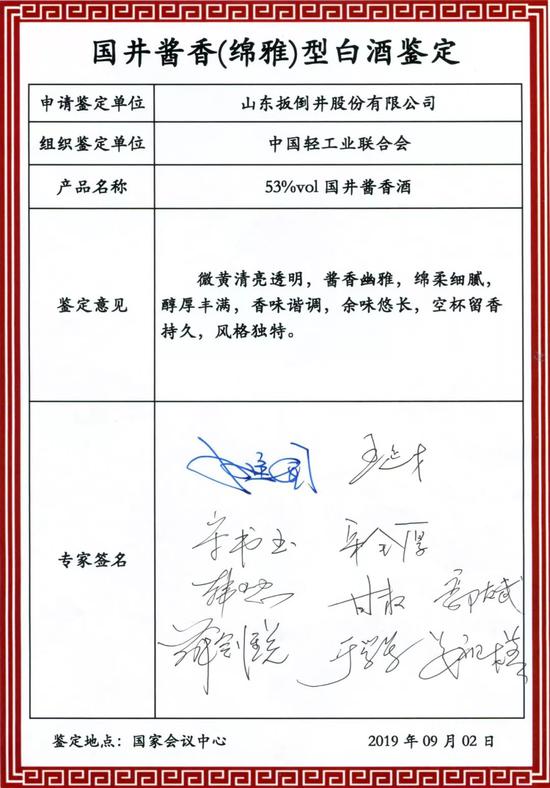 国井酱香(绵雅)型白酒鉴定
申请鉴定单位 山东扳倒井股份有限公司
组织鉴定单位 中国轻工业联合会
产品名称 53%vol 国井酱香酒
鉴定意见
微黄清亮透明，酱香幽雅，绵柔细腻，
醇厚丰满，香味谐调，余味悠长，空杯留香
持久，风格独特。
专家签名
王延才
宋书玉
甘权 郭斌
于学军
鉴定地点：国家会议中心 2019 年 09 月 02 日